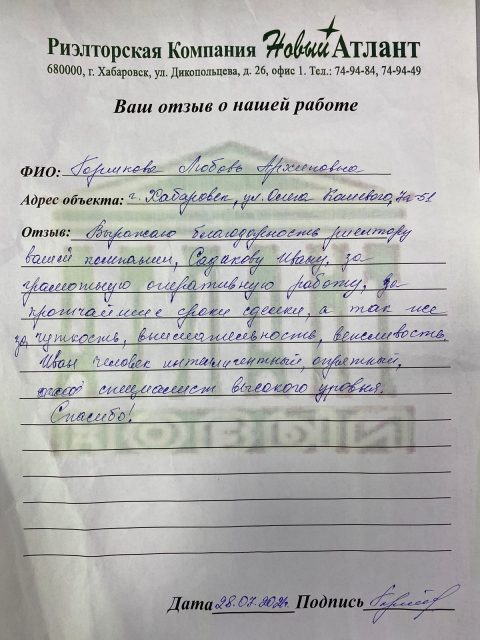 Риэлторская Компания Новый Атлант
680000, г. Хабаровск, ул. Дикопольцева, д. 26, офис 1. Тел.: 74-94-84, 74-94-49
Ваш отзыв о нашей работе
ФИО: Горшкова Любовь Архиповна
Адрес объекта: г. Хабаровск, ул. Олега Кошевого,
Отзыв: Выражаю благодарность риелтору
вашей компании, Садакову Ивану, за
грамотную оперативную работу, за
кротчайшие сроки сделки, а так же
за чуткость, внимательность, вежливость.
Иван человек интелигентный, опрятный,
специалист высокого уровня.
Спасибо!
Дата 28.07.202 Подпись